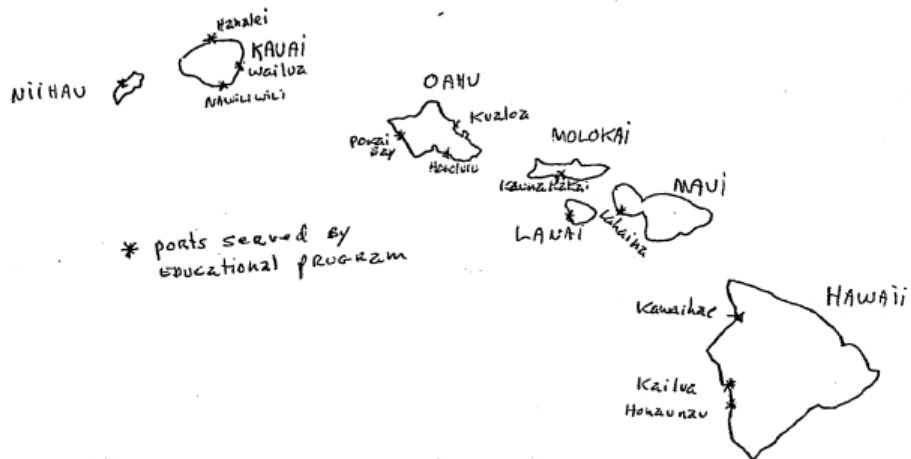 Hanalei
KAUAI
Wailua
NAWILIWILI
NIIHAU
OAHU
Kualoa
POKAI
BAY
Honolulu
MOLOKAI
Kaunakakai
MAUI
Lahaina
LANAI
* ports served by
EDUCATIONAL PROGRAM
HAWAII
Kawaihae
Kailua
Honaunau